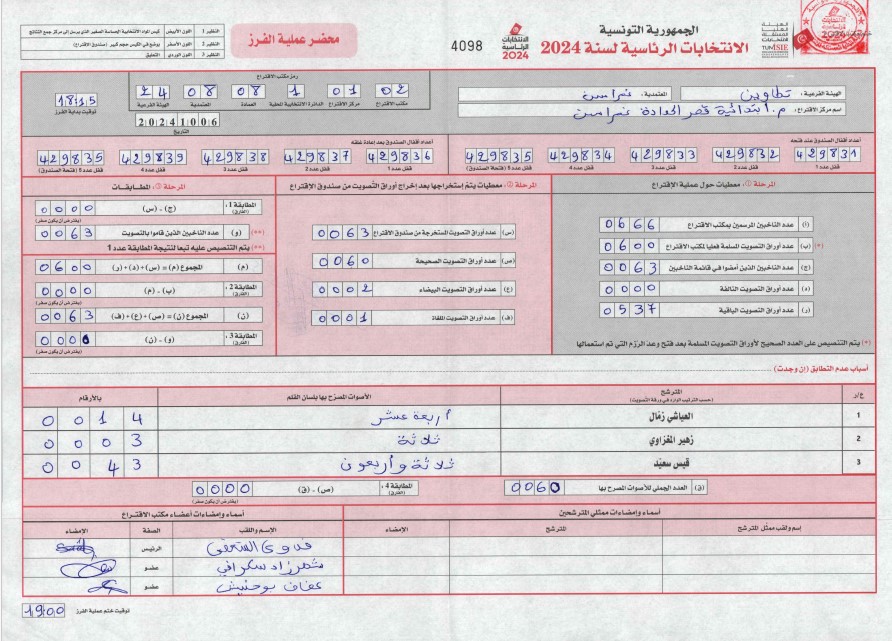 الجمهورية التونسية
الانتخابات الرئاسية لسنة 2024
الانتخابات الرئاسية 2024
4098
محضر عملية الفرز
النظير 1 اللون الأبيض
النظير 2 اللون الأصفر يوضع في الكيس حجم كبير (صندوق الاقتراع)
النظير 3 اللون الوردي التعليق
الهيئة الفرعية : تطاوين المعتمدية : غمراسن
اسم مركز الاقتراع : م. ابتدائية قصر الحدادة غمراسن
رمز مكتب الاقتراع
02 01 1 08 08 24
مكتب الاقتراع مركز الاقتراع الدائرة الانتخابية المحلية العمادة المعتمدية الهيئة الفرعية
18:15
توقيت بداية الفرز
20241006
التاريخ
أعداد أقفال الصندوق عند فتحه
429831 429832 429833 429834 429835
قفل عدد 1 قفل عدد 2 قفل عدد 3 قفل عدد 4 قفل عدد 5 (فتحة الصندوق)
أعداد أقفال الصندوق بعد إعادة غلقه
429836 429837 429838 429839 429835
قفل عدد 1 قفل عدد 2 قفل عدد 3 قفل عدد 4 قفل عدد 5 (فتحة الصندوق)
المرحلة ①: معطيات حول عملية الاقتراع
(أ) عدد الناخبين المرسمين بمكتب الاقتراع 0666
(*) (ب) عدد أوراق التصويت المسلمة فعليا لمكتب الاقتراع 0600
(ج) عدد الناخبين الذين أمضوا في قائمة الناخبين 0063
(د) عدد أوراق التصويت التالفة 0000
(ر) عدد أوراق التصويت الباقية 0537
(*) يتم التنصيص على العدد الصحيح لأوراق التصويت المسلمة بعد فتح وعد الرزم التي تم استعمالها
المرحلة ②: معطيات يتم إستخراجها بعد إخراج أوراق التصويت من صندوق الإقتراع
(س) عدد أوراق التصويت المستخرجة من صندوق الاقتراع 0063
(ص) عدد أوراق التصويت الصحيحة 0060
(ع) عدد أوراق التصويت البيضاء 0002
(ف) عدد أوراق التصويت الملغاة 0001
المرحلة ③: المطابقات
المطابقة 1: (الفارق) (ج) - (س) 0000
(يفترض أن يكون صفر)
(و) عدد الناخبين الذين قاموا بالتصويت (**) 0063
(**) يتم التنصيص عليه تبعا لنتيجة المطابقة عدد 1
(م) المجموع (م) = (س) + (د) + (ر) 0600
المطابقة 2: (الفارق) (ب) - (م) 0000
(يفترض أن يكون صفر)
(ن) المجموع (ن) = (ص) + (ع) + (ف) 0063
المطابقة 3: (الفارق) (و) - (ن) 0000
(يفترض أن يكون صفر)
أسباب عدم التطابق (إن وجدت)
ع/ر المترشح الأصوات المصرح بها بلسان القلم بالأرقام
(حسب الترتيب الوارد في ورقة التصويت)
1 العياشي زمّال أربعة عشر 0014
2 زهير المغزاوي ثلاثة 0003
3 قيس سعيّد ثلاثة وأربعون 0043
(ق) العدد الجملي للأصوات المصرح بها 0060
المطابقة 4: (الفارق) (ص) - (ق) 0000
(يفترض أن يكون صفر)
أسماء وإمضاءات ممثلي المترشحين
إسم ولقب ممثل المترشح المترشح الإمضاء
أسماء وإمضاءات أعضاء مكتب الاقتراع
الإسم واللقب الصفة الإمضاء
الرئيس
شهرزاد سكرافي عضو
عفاف بوحنيش عضو
توقيت ختم عملية الفرز 19:00